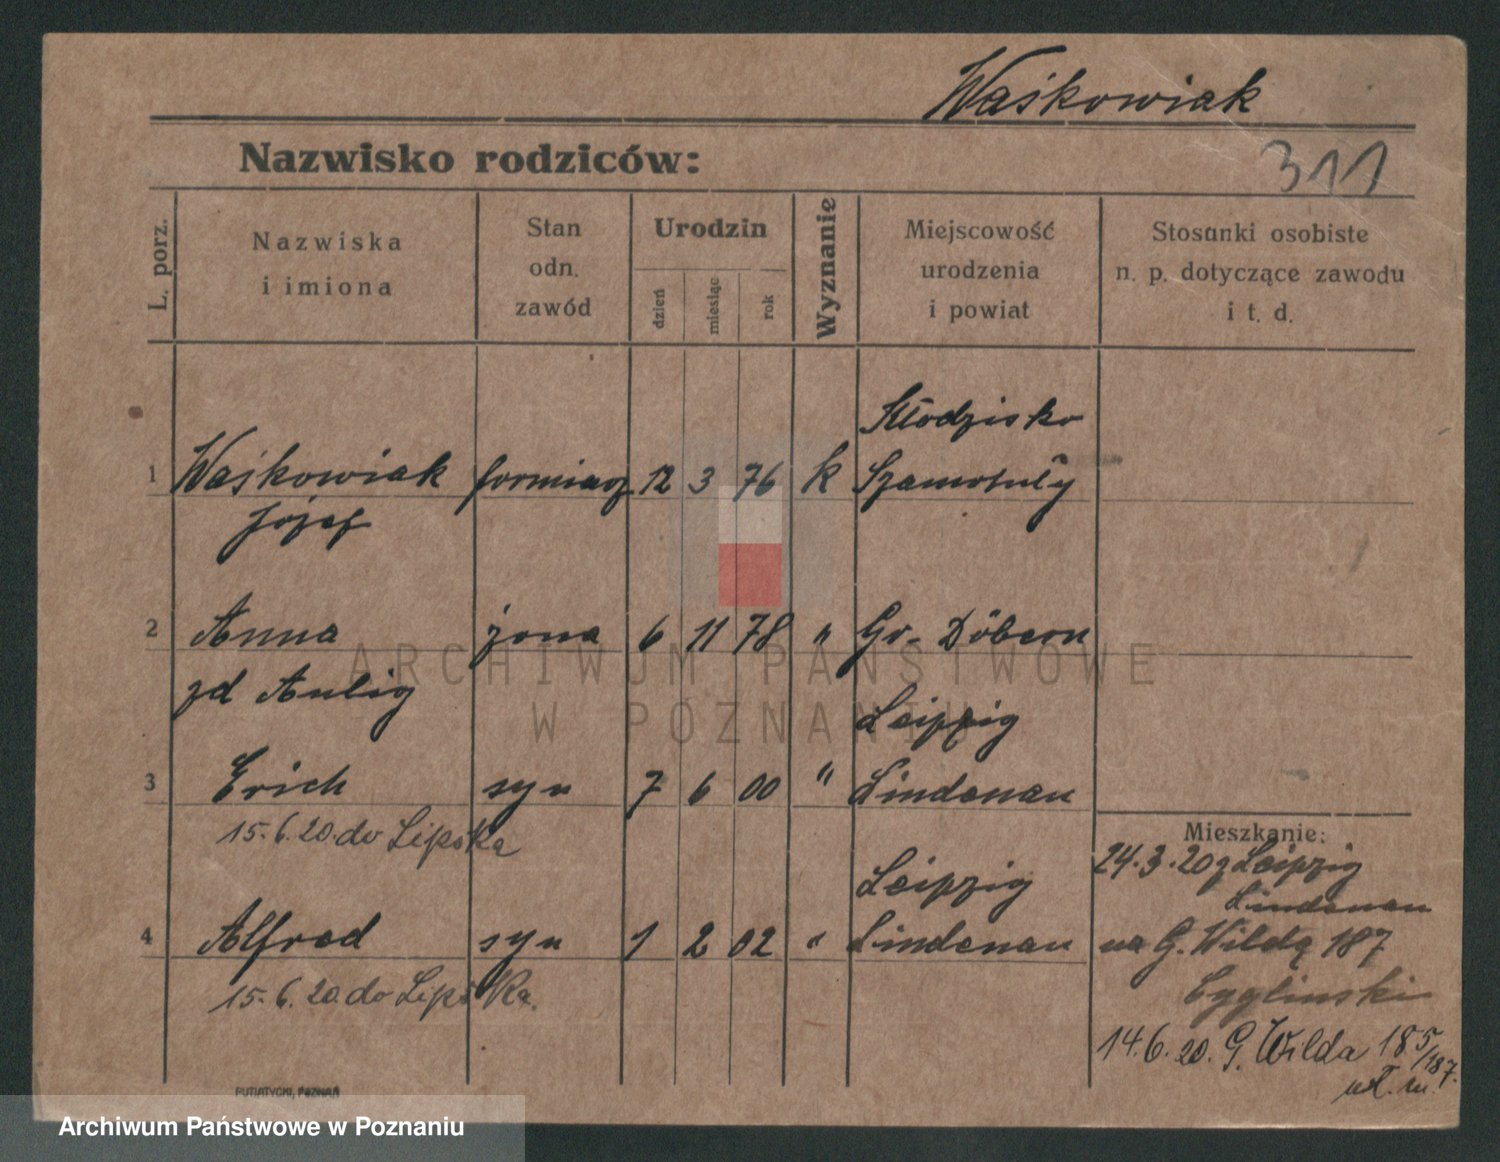 Waśkowiak
Nazwisko rodziców:
311
L. porz.
Nazwiska
i imiona
Stan
odn.
zawód
Urodzin
dzień
miesiąc
rok
Wyznanie
Miejscowość
urodzenia
i powiat
Stosunki osobiste
n. p. dotyczące zawodu
i t. d.
Kłodzisko
1 Waśkowiak formiarz 12 3 76 k Szamotuły
Józef
2 Anna żona 6 11 78 " Gr. Döbern
zd Aulig
Leipzig
3 Erich syn 7 6 00 " Lindenau
15.6.20. do Lipska
Mieszkanie:
24.3.20 z Leipzig
Lindenau
Leipzig
4 Alfred syn 1 2 02 " Lindenau
na G. Wildą 187
15.6.20 do Lipska.
Cyglinski
14.6.20. G. Wilda 185/187.
PUTIATYCKI, POZNAŃ
ARCHIWUM PAŃSTWOWE
W POZNANIU
Archiwum Państwowe w Poznaniu